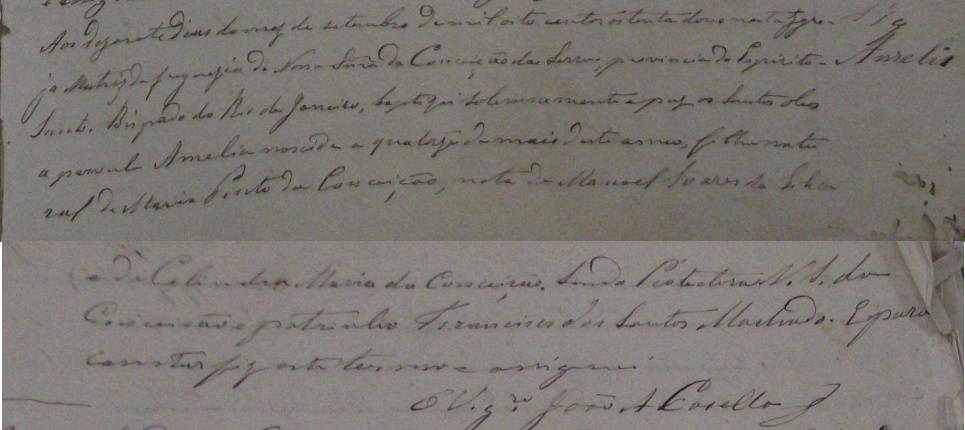 Aos dezasete dias do mez de setembro de mil oito centos oitenta e dous nesta Igre-
Amelia
ja Matriz da freguezia de Nossa Snrã da Conceição da Serra, provincia do Espirito-
Santo. Bispado do Rio de Janeiro, baptizei solemnemente e puz os Santos oleos
a parvula Amelia nascida a quatorze de maio deste anno, filha natu
ral de Maria Pinto da Conceição, neta de Manoel Soares da Silva
e de Maria da Conceição. Sendo Protectora N. S. da
Conceição e patrinho Francisco dos Santos Machado. E para
constar fiz este termo e asignei.
O Vigrº João A